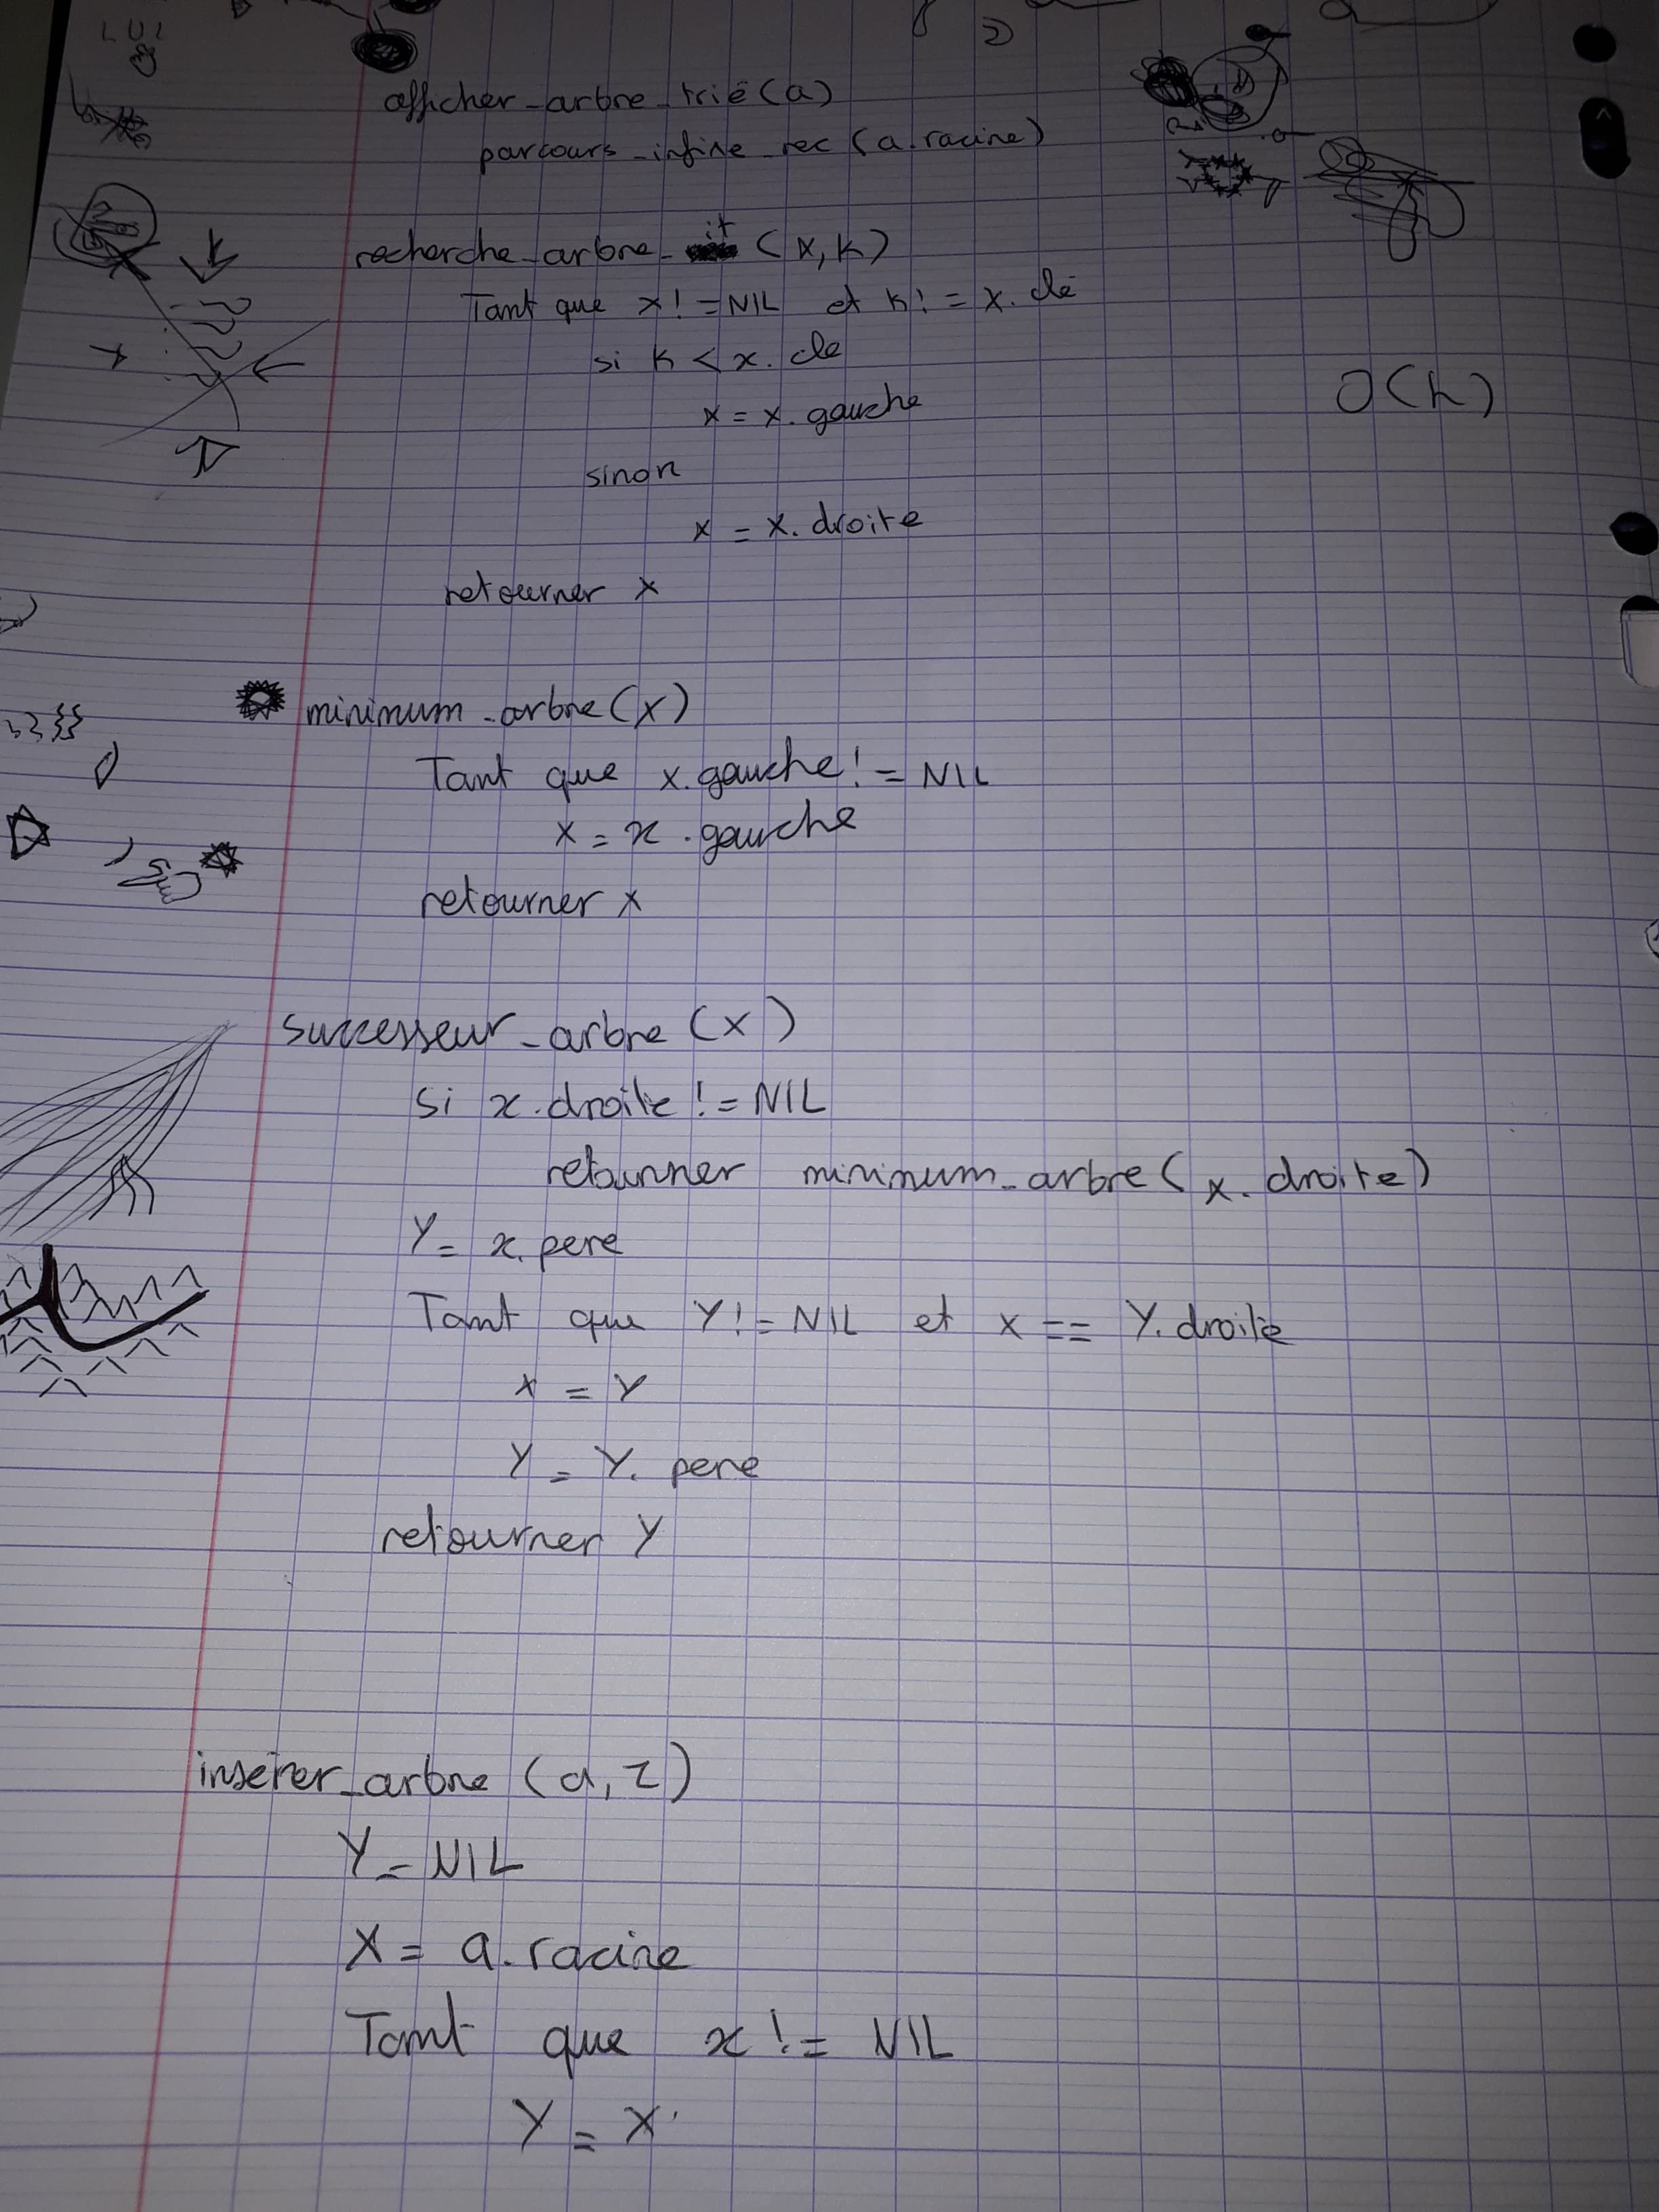 LUI
2
afficher_arbre_trié(a)
parcours_infixe_rec(a.racine)
recherche_arbre_it (x, k)
Tant que x! = NIL et k! = x. clé
si k < x. cle
x = x. gauche
O(h)
sinon
x = x. droite
retourner x
minimum_arbre(x)
Tant que x.gauche! = NIL
x = x .gauche
retourner x
successeur_arbre (x)
si x.droite != NIL
retourner minimum_arbre( x. droite)
Y= x.pere
Tant que Y! = NIL et x == Y.droite
x = Y
Y = Y. pere
retourner Y
insérer_arbre (a, z)
Y = NIL
X = a.racine
Tant que x != NIL
Y = X